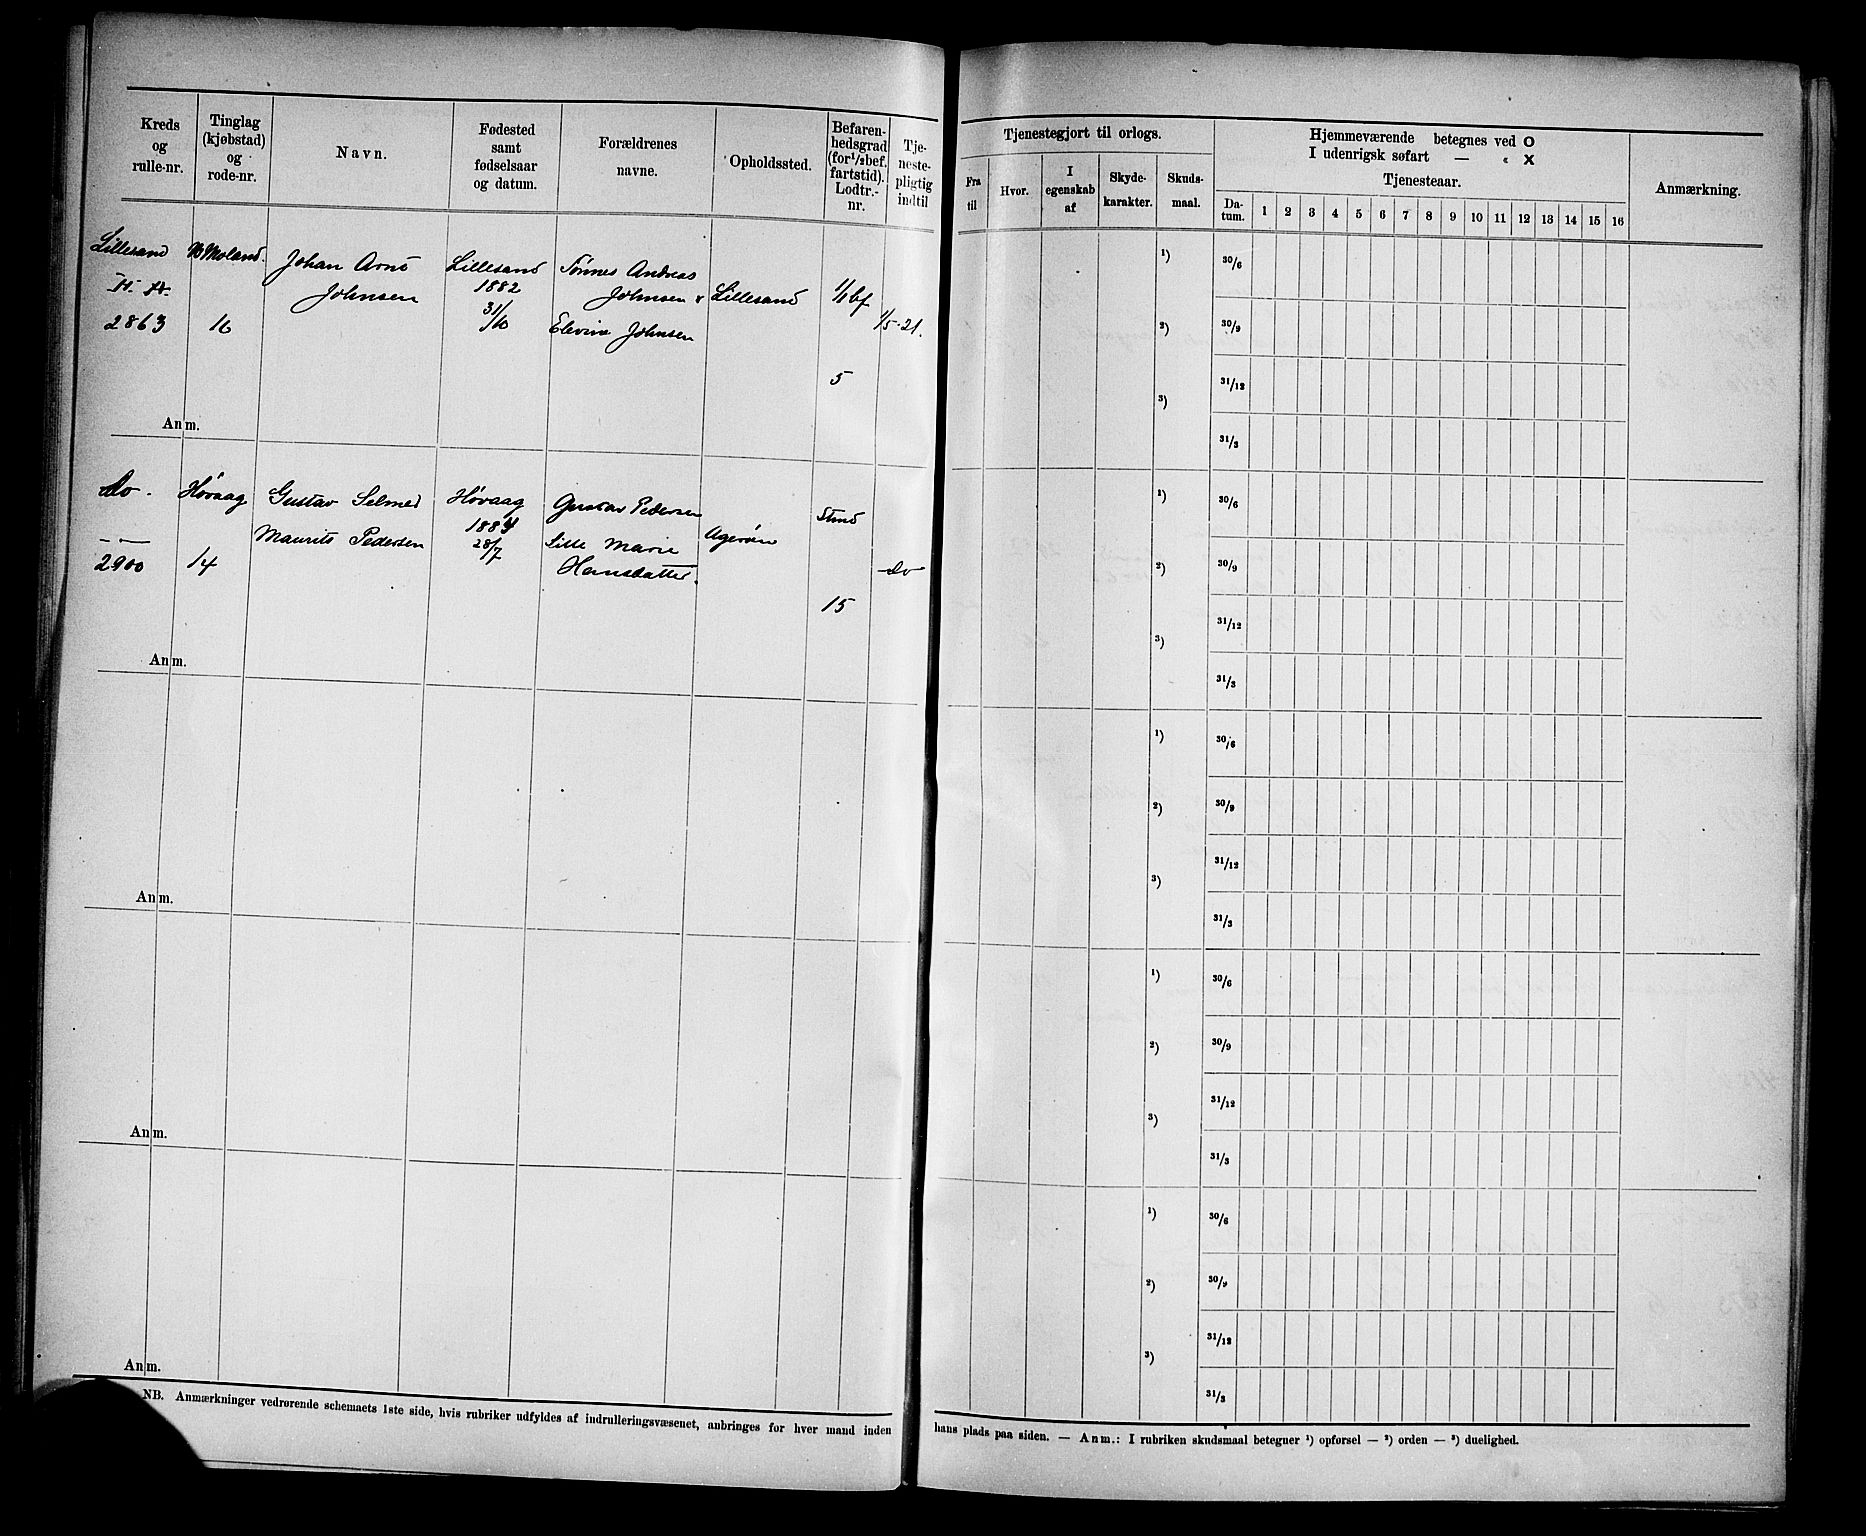 Kreds
og
rulle-nr.
Tinglag
(kjøbstad)
og
rode-nr.
Navn.
Fødested
samt
fødselsaar
og datum.
Forældrenes
navne.
Opholdssted.
Befaren-
hedsgrad
(for 1/2 bef.
fartstid).
Lodtr.-
nr.
Tje-
neste-
pligtig
indtil
Tjenestegjort til orlogs.
Fra
til
Hvor.
I
egenskab
af
Skyde-
karakter.
Skuds-
maal.
Hjemmeværende betegnes ved O
I udenrigsk søfart — " X
Tjenesteaar.
Da-
tum.
1 2 3 4 5 6 7 8 9 10 11 12 13 14 15 16
Anmærkning.
Lillesand
2863
V Moland.
16
Johan Arnt
Johnsen
Lillesand
1882
31/10
Tønnes Andreas
Johnsen &
Elevine Johnsen
Lillesand
1/1 bf
5
1/5-21.
Anm.
1)
2)
3)
30/6
30/9
31/12
31/3
do.
— —
2900
Høvaag
14
Gustav Selmer
Maurits Pedersen
Høvaag
1884
28/7
Gustav Pedersen
Sille Marie
Hansdatter.
Agerøen
15
do
Anm.
1)
2)
3)
30/6
30/9
31/12
31/3
Anm.
1)
2)
3)
30/6
30/9
31/12
31/3
Anm.
1)
2)
3)
30/6
30/9
31/12
31/3
Anm.
1)
2)
3)
30/6
30/9
31/12
31/3
NB. Anmærkninger vedrørende schemaets 1ste side, hvis rubriker udfyldes af indrulleringsvæsenet, anbringes for hver mand inden hans plads paa siden. — Anm.: I rubriken skudsmaal betegner 1) opførsel — 2) orden — 3) duelighed.